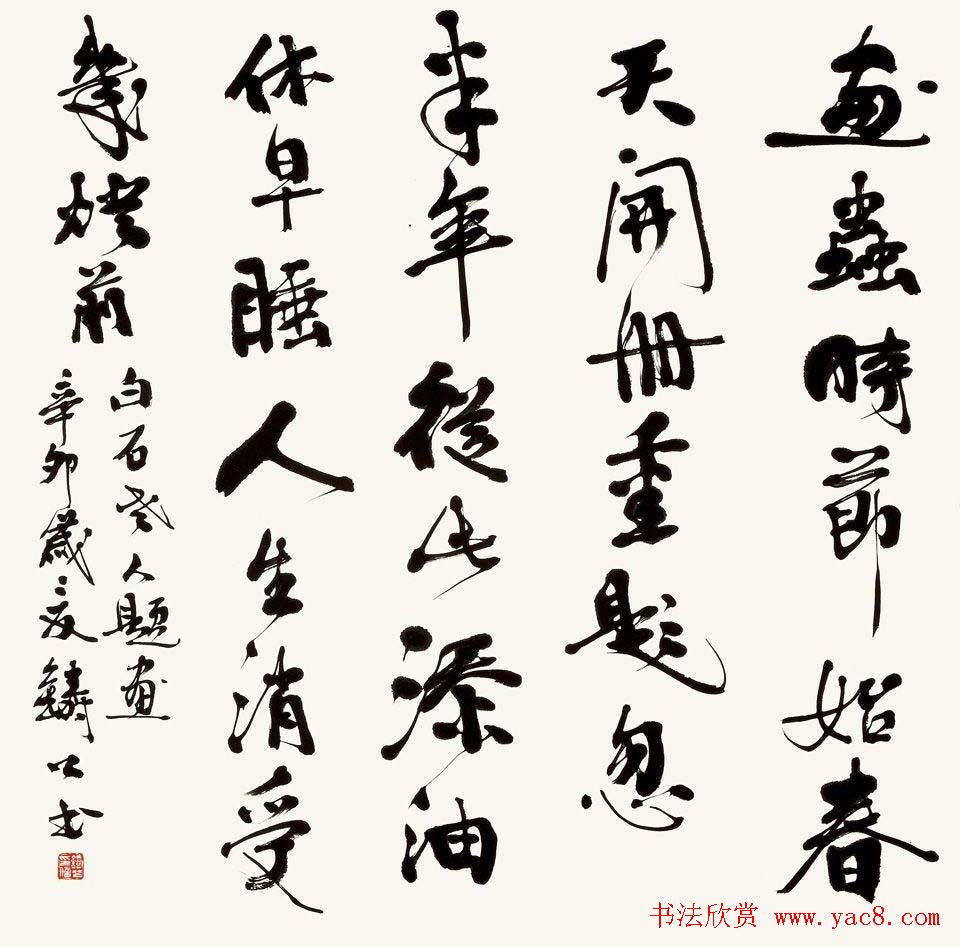 畫蟲時節始春
天開冊重題忽
半年從此添油
休早睡人生消受
幾燈前
白石老人題畫
辛卯歲三友鑄公書
书法欣赏 www.yac8.com